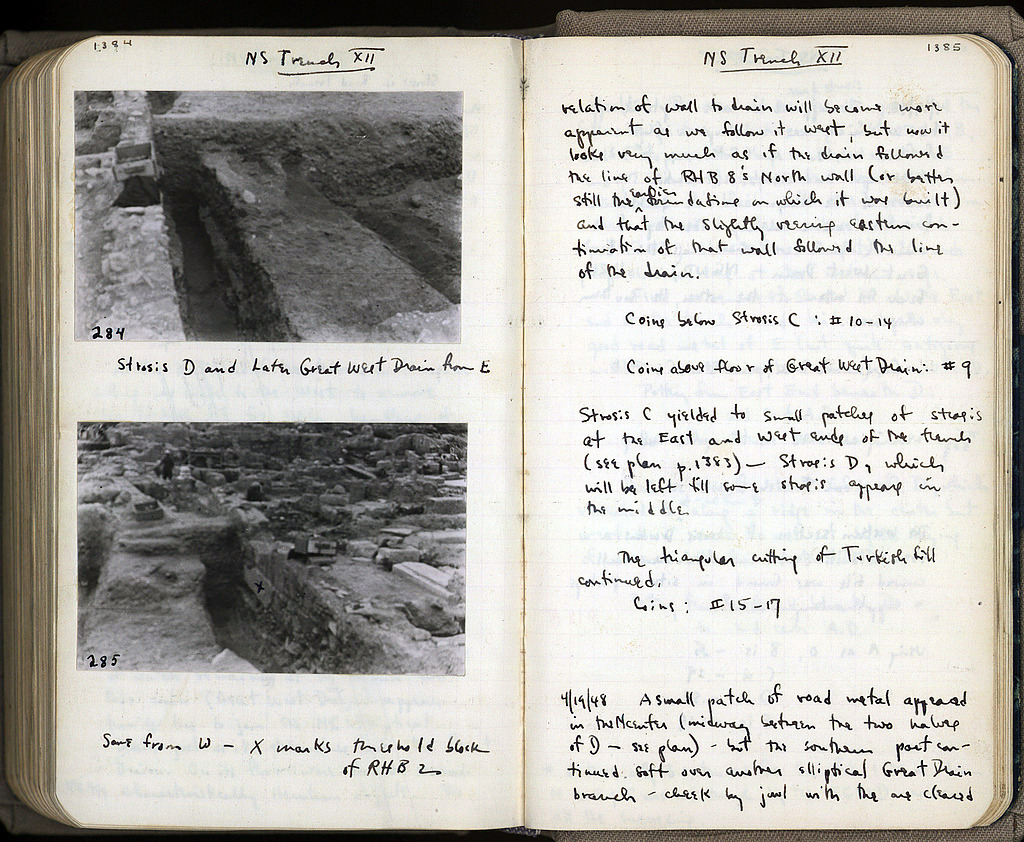 1384
NS Trench XII
284
Strosis D and Later Great West Drain from E
285
Same from W — X marks threshold block
of RHB 2
1385
NS Trench XII
relation of wall to drain will become more
apparent as we follow it west, but now it
looks very much as if the drain followed
the line of RHB 8's North wall (or better
still the earlier foundations on which it was built)
and that the slightly veering eastern con-
tinuation of that wall followed the line
of the drain.
Coins below Strosis C : # 10-14
Coins above floor of Great West Drain: # 9
Strosis C yielded to small patches of strosis
at the East and West ends of the trench
(see plan p.1383) — Strosis D, which
will be left till some strosis appears in
the middle.
The triangular cutting of Turkish fill
continued.
Coins : # 15-17
4/19/48 A small patch of road metal appeared
in the center (midway between the two halves
of D — see plan) - but the southern part con-
tinued soft over another elliptical Great Drain
branch - cheek by jowl with the one cleared